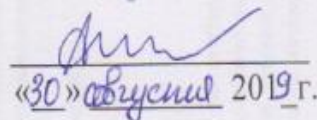 «30» августа 2019 г.